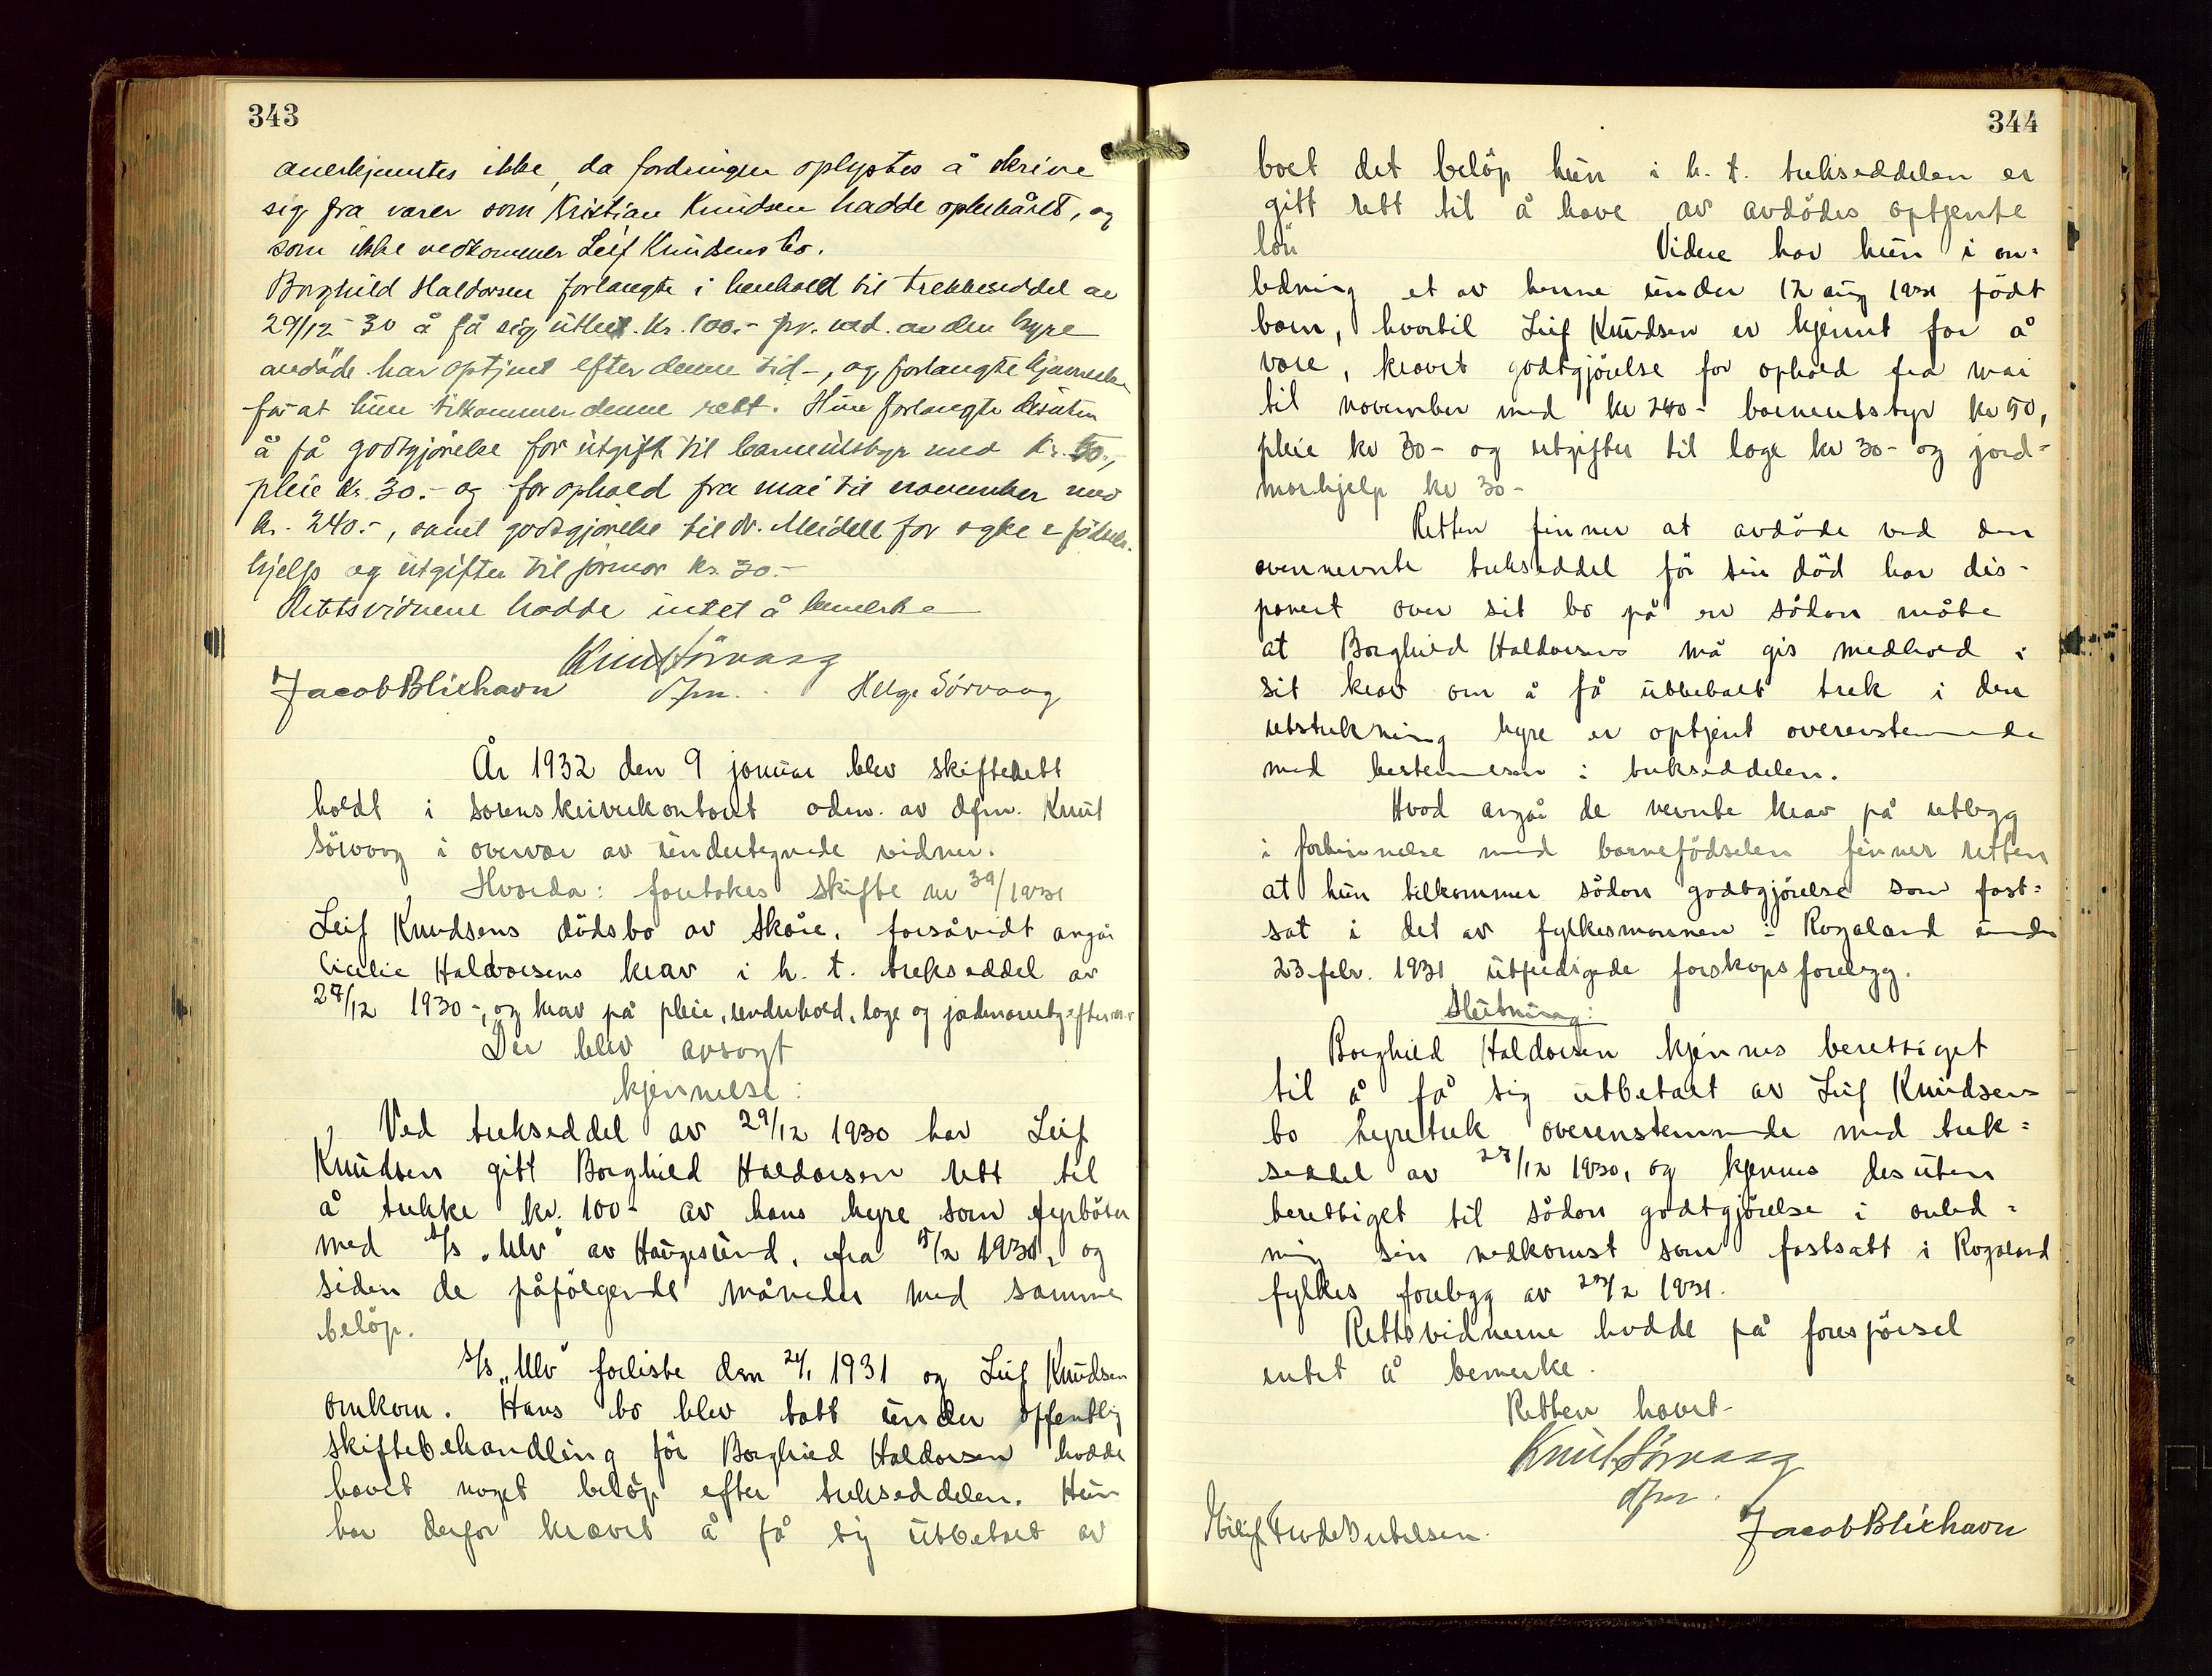 343
anerkjentes ikke, da fordringen oplystes å skrive
sig fra varer som Kristian Knudsen hadde opbebåret, og
som ikke vedkommer Leif Knudsens bo.
Borghild Haldorsen forlangte i henhold til trekkseddel av
29/12-30 å få sig utbet. Kr. 100.- pr. md. av den hyre
avdöde har optjent efter denne tid-, og forlangte kjennelse
for at hun tilkommer denne rett. Hun forlangte desuten
å få godtgjörelse for utgift til barneutstyr med kr. 50.-,
pleie kr. 30.- og for ophold fra mai til november med
kr. 240.-, samt godtgjörelse til dr. Meidell for
hjelp og utgifter til jormor kr. 30.-
Rettsvidnene hadde intet å bemerke
Knut Sörvaag
Jacob Blixhavn dfm. Helge Sörvaag
År 1932 den 9 januar blev skifterett
holdt i sorenskriverkontoret adm. av dfm. Knut
Sörvaag i overvær av undertegnede vidner.
Hvorda: foretokes skifte nr 39/1931
Leif Knudsens dödsbo av Skåre, forsåvidt angår
Cicelie Haldorsens krav i h. t. trekseddel av
29/12 1930-, og krav på pleie, underhold, læge og jordmorutgifter m.v.
Der blev avsagt
kjennelse:
Ved trekseddel av 29/12 1930 har Leif
Knudsen gitt Borghild Haldorsen rett til
å trekke kr. 100- av hans hyre som fyrböter
med s/s "Ulv" av Haugesund, fra 15/2 1931, og
siden de påfölgende måneder med samme
belöp.
s/s "Ulv" forliste den 24/1 1931 og Leif Knudsen
omkom. Hans bo blev tatt under offentlig
skiftebehandling för Borghild Haldorsen hadde
hævet noget belöp efter trekseddelen. Hun
har derfor krævet å få sig utbetalt av
344
boet det belöp hun i h. t. trekseddelen er
gitt rett til å hæve av avdödes optjente
lön Videre har hun i an-
ledning et av henne under 12 aug 1931 födt
barn, hvortil Leif Knudsen er kjennt for å
være, krævet godtgjörelse for ophold fra mai
til november med kr 240- barneutstyr kr 50,
pleie kr 30- og utgifter til læge kr 30- og jord-
morhjelp kr 30-
Retten finner at avdöde ved den
ovennevnte trekseddel för sin död har dis-
ponert over sit bo på en sådan måte
at Borghild Haldorsen må gis medhold i
sit krav om å få utbetalt trek i den
utstrekning hyre er optjent overenstemmende
med bestemmelsen i trekseddelen.
Hvad angår de nevnte krav på utlegg
i forbinnelse med barnefödselen finner retten
at hun tilkommer sådan godtgjörelse som fast-
sat i det av fylkesmannen i Rogaland under
23 febr. 1931 utferdigede farskapsforelegg.
Slutning:
Borghild Haldorsen kjennes berettiget
til å få sig utbetalt av Leif Knudsens
bo hyretrek overenstemmende med trek-
seddel av 29/12 1930, og kjennes desuten
berettiget til sådan godtgjörelse i anled-
ning sin nedkomst som fastsatt i Rogaland
fylkes forelegg av 23/2 1931.
Rettsvidnerne hadde på forespörsel
intet å bemerke.
Retten hævet-
Knut Sörvaag
dfm.
Jacob Blixhavn